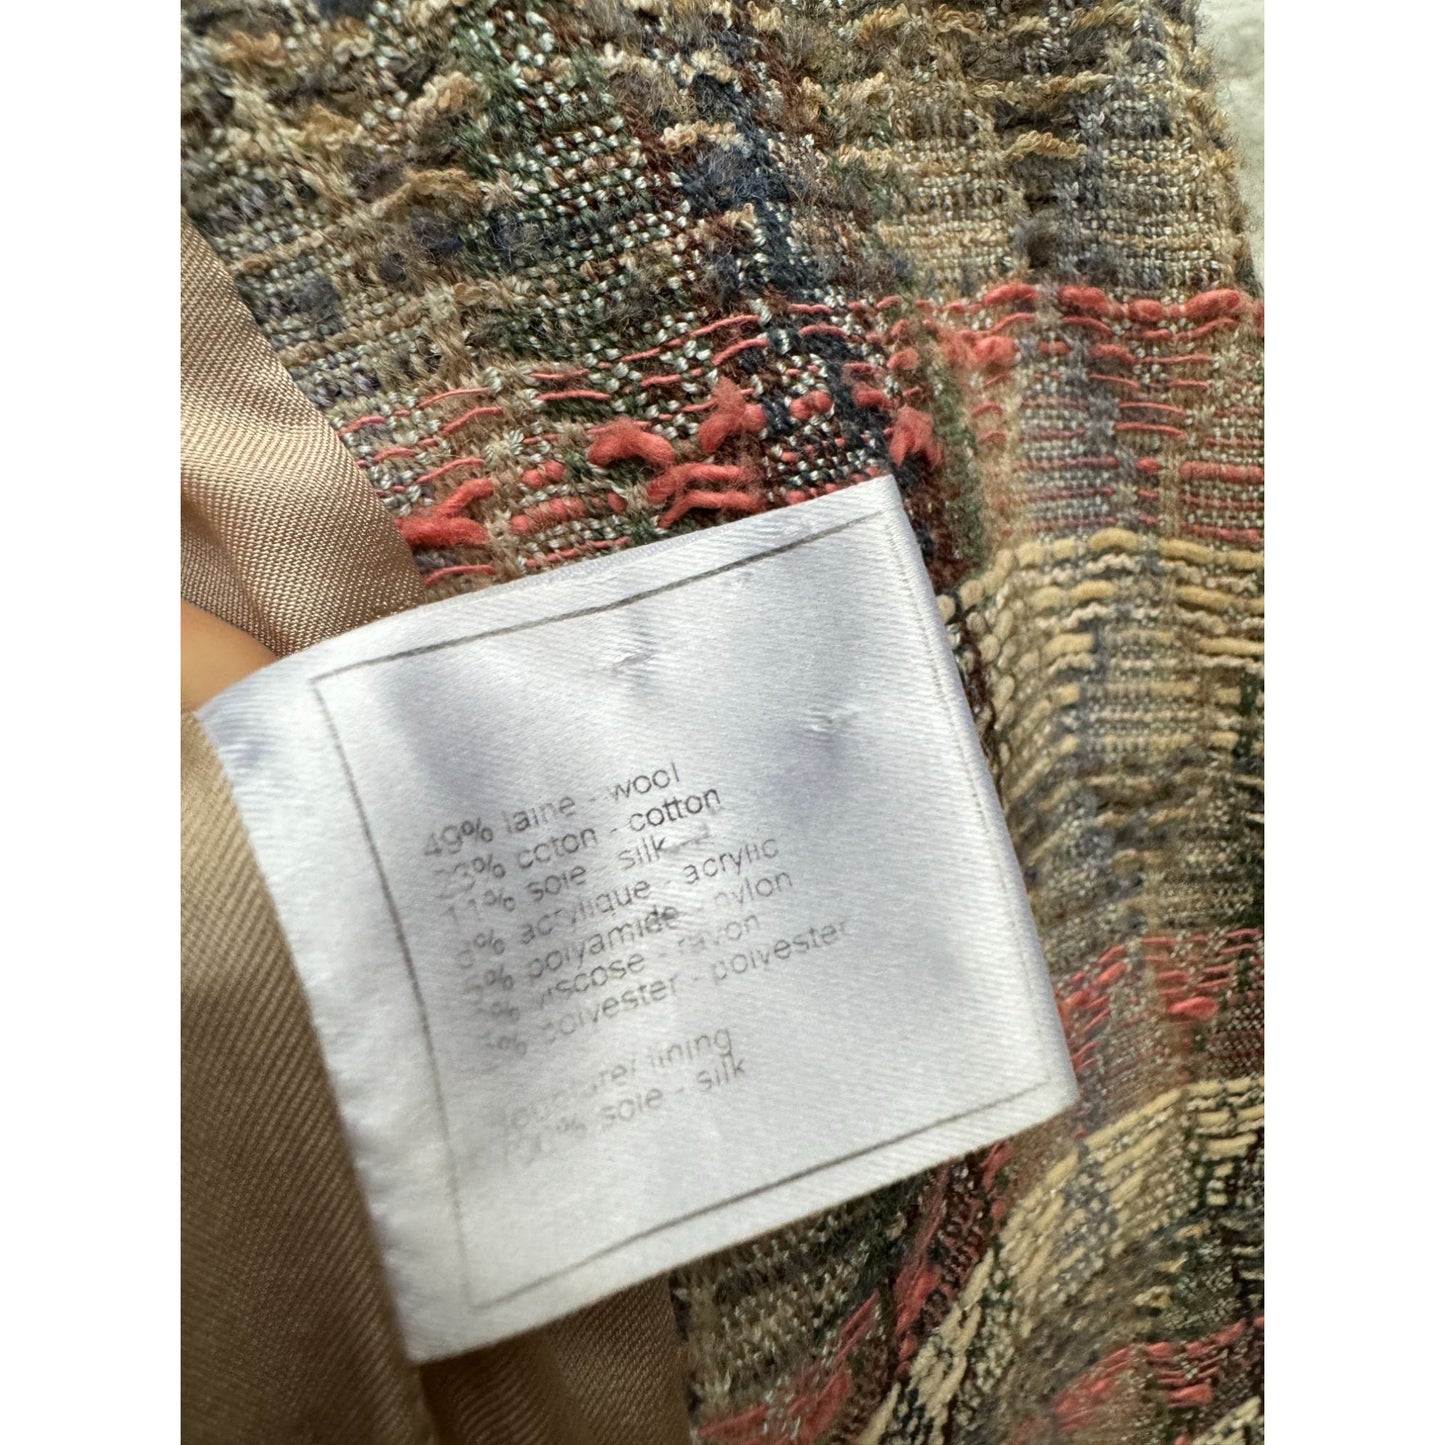 49% laine - wool
23% coton - cotton
11% soie - silk
8% acrylique - acrylic
5% polyamide - nylon
viscose - rayon
polyester - polyester
lining
100% soie - silk